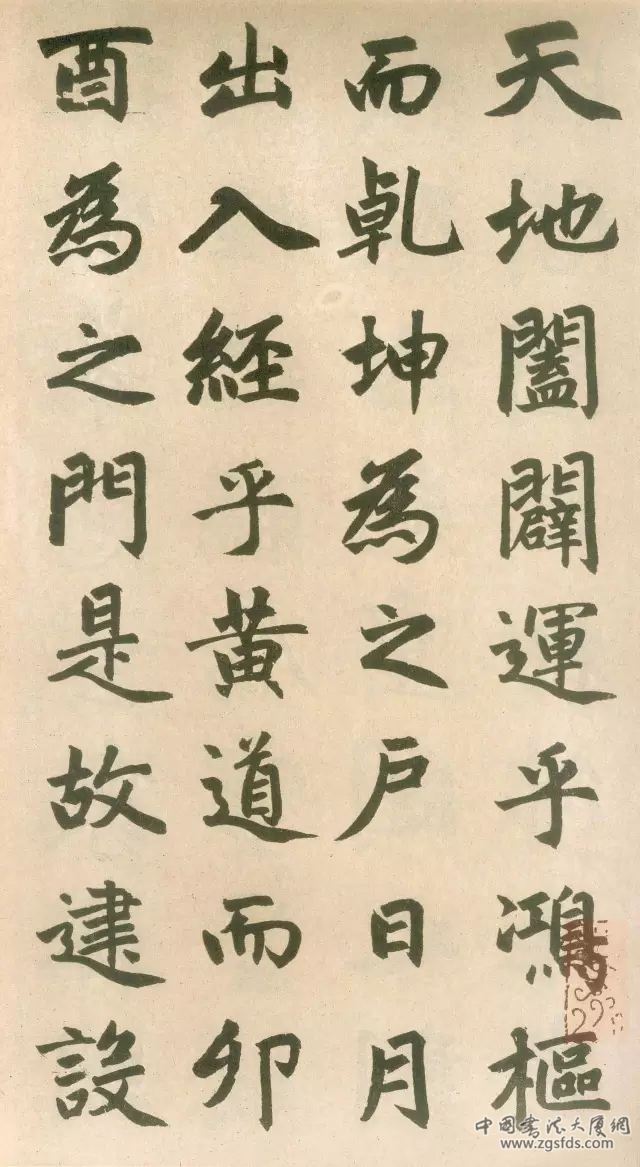 天地闔闢運乎鴻樞
而乹坤為之戶日月
出入經乎黃道而卯
酉為之門是故建設
中国书法大厦網
www.zgsfds.com